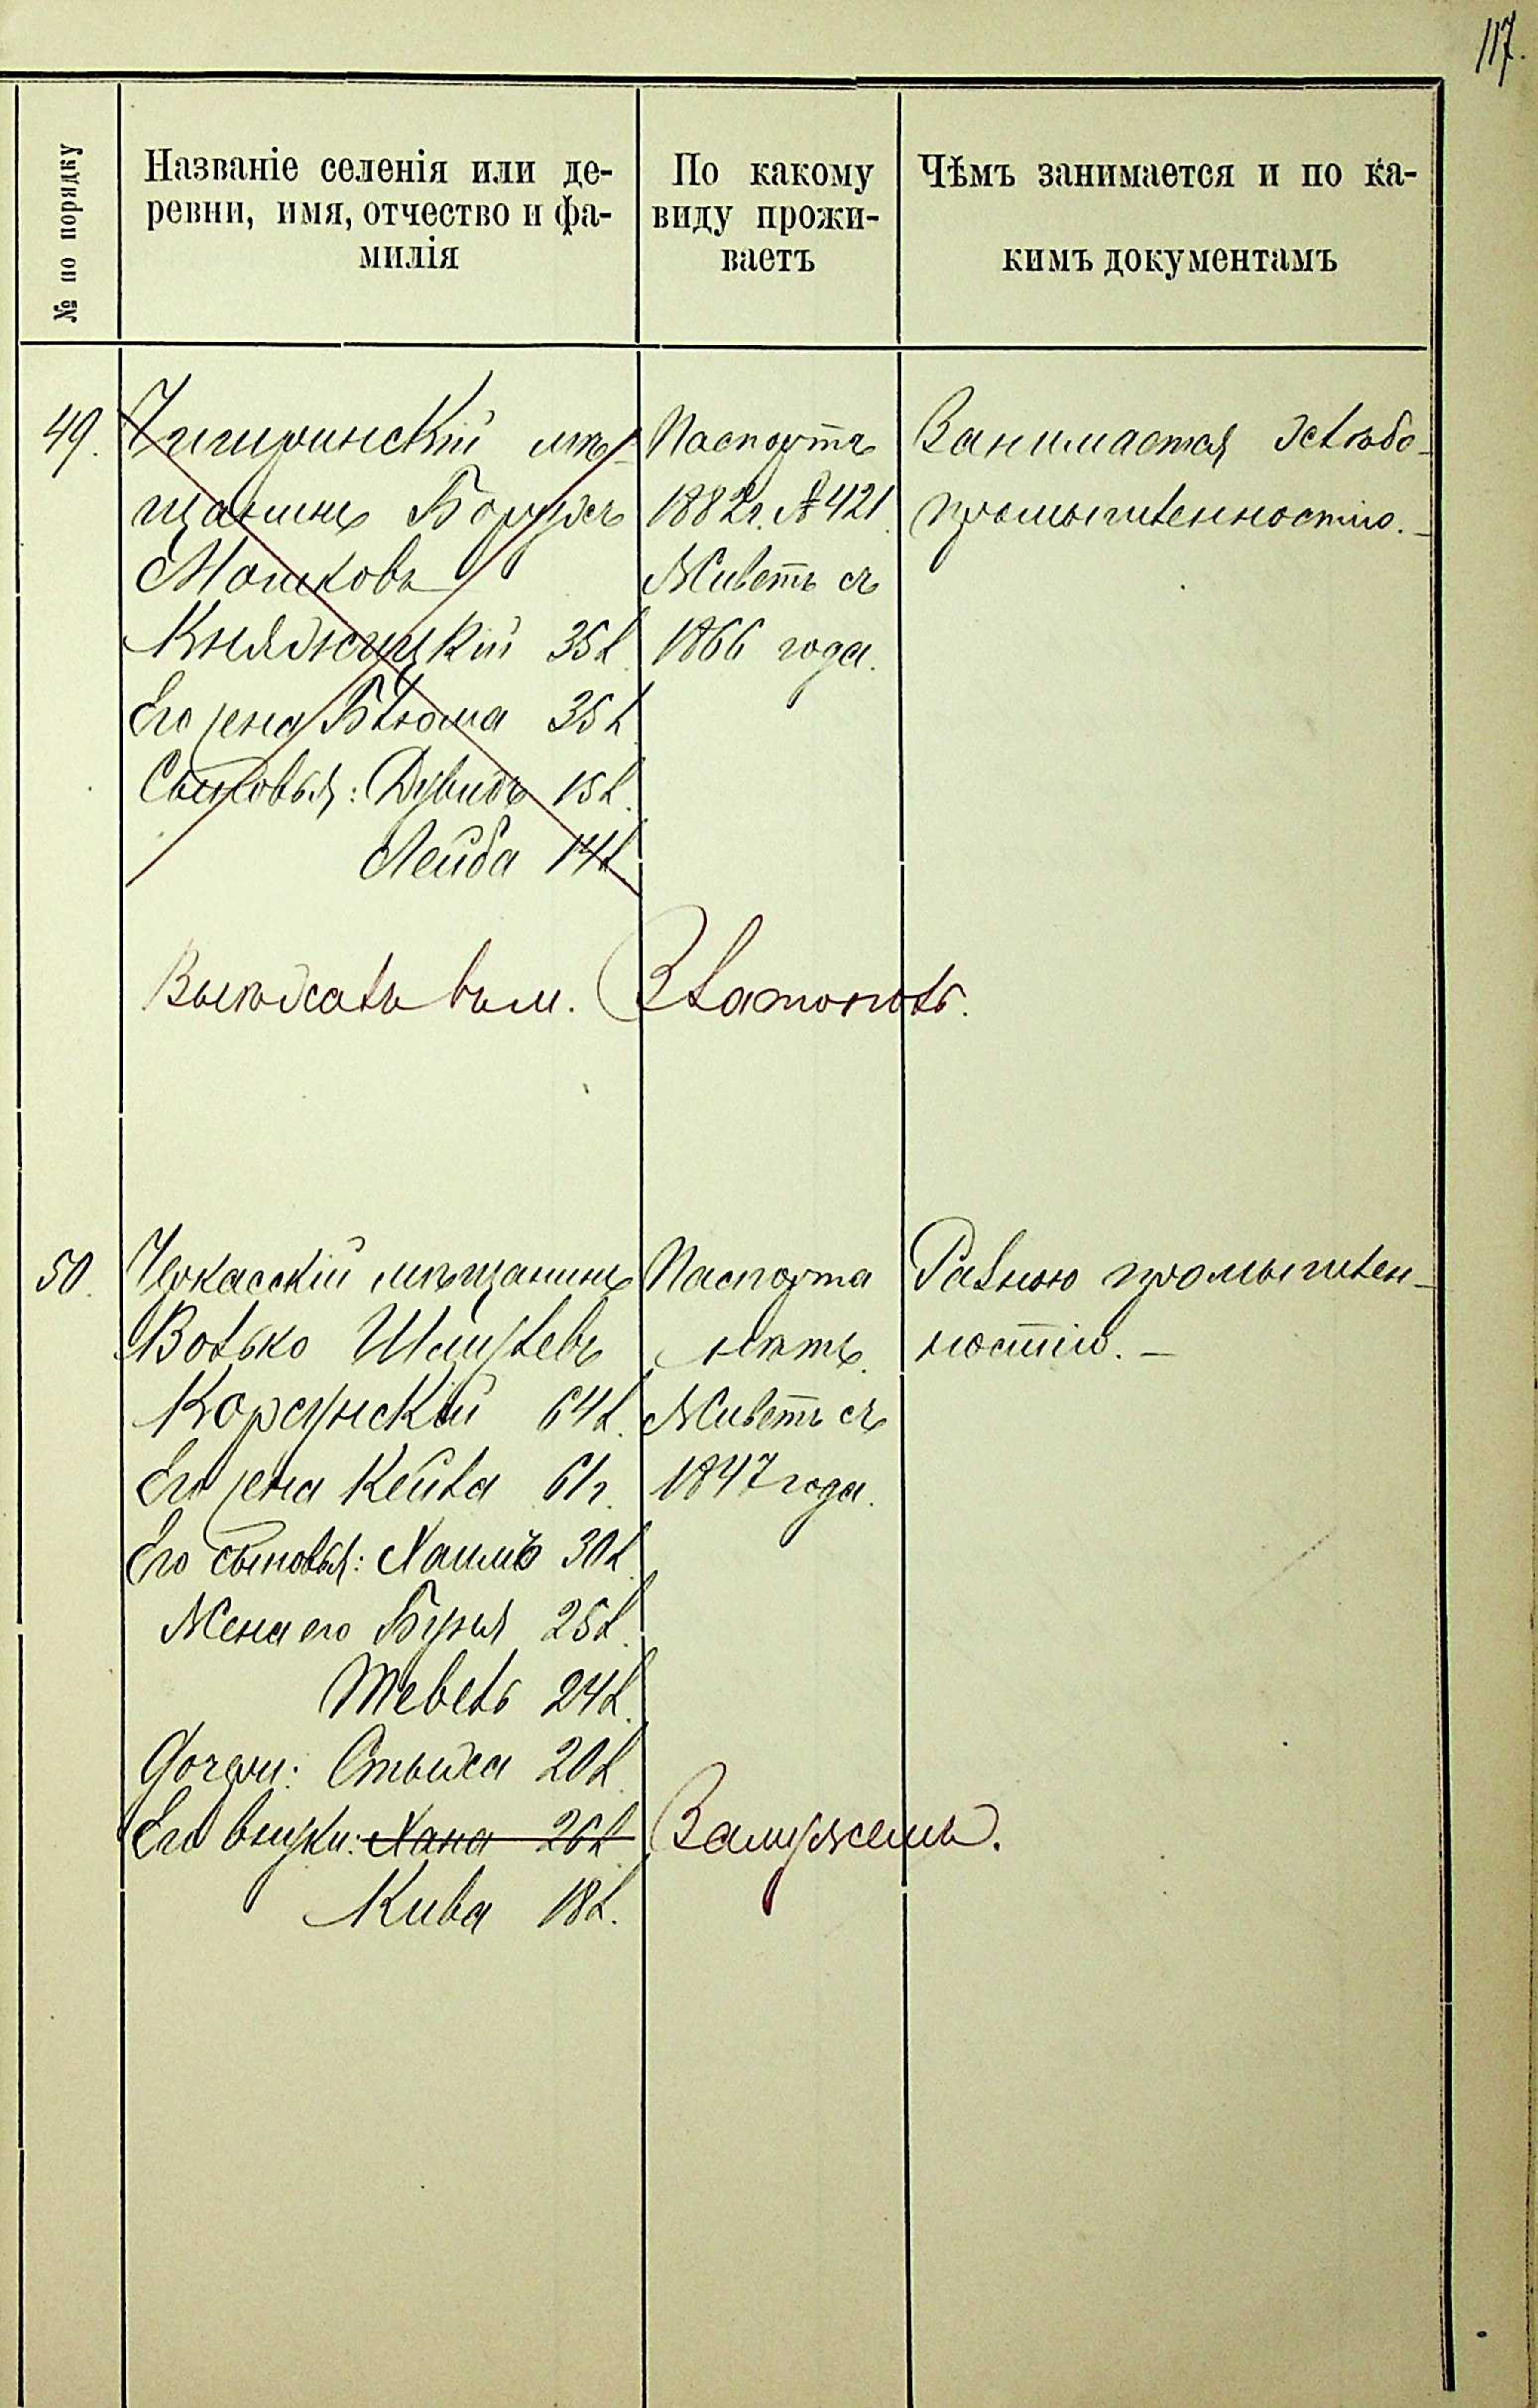 117.
№ по порядку
Названіе селенія или де-
ревни, имя, отчество и фа-
милія
По какому
виду прожи-
ваетъ
Чѣмъ занимается и по ка-
кимъ документамъ
49.
Чигиринскій мѣ-
щанинъ Борухъ
Мошковъ
Княжицкій 35 л.
Его жена Блюма 35 л.
Сыновья: Дувидъ 15 л.
Лейба 14 л.
Паспортъ
1882 г. № 421.
Живетъ съ
1866 года.
Занимается хлѣбо-
промышленностію. –
Выѣхалъ въ м. Златополь.
50.
Черкасскій мѣщанинъ
Волько Шмулевъ
Корсунскій 64 л.
Его жена Кейла 61 г.
Его сыновья: Хаимъ 30 л.
Жена его Бруня 25 л.
Тевель 24 л.
Дочери: Стыся 20 л.
Его внуки: Хана 26 л.
Кива 18 л.
Паспорта
нѣтъ.
Живетъ съ
1847 года.
Разною промышлен-
ностію. –
Замужемъ.